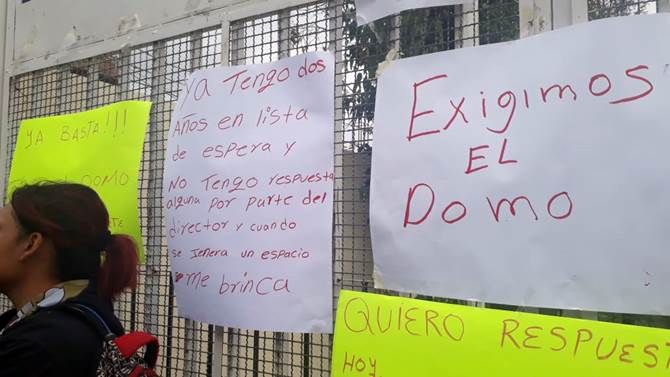 YA BASTA!!!
DOMO
YA TENGO dos
AÑOS en lista
de espera y
NO TENGO respuesta
alguna por parte del
director y cuando
se jenera un espacio
me brinca
Exigimos
EL
Domo
QUIERO RESPUEST
HOY